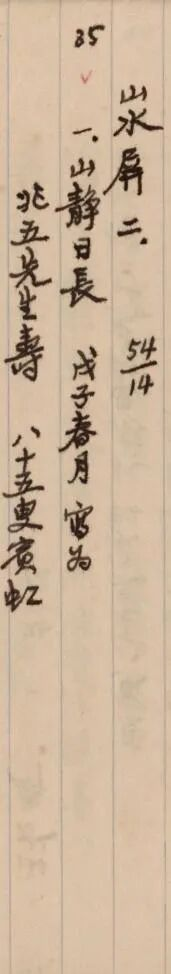 山水屏二. 54/14
35 一、山靜日長 戊子春月 寫為
兆五先生壽 八十五叟賓虹